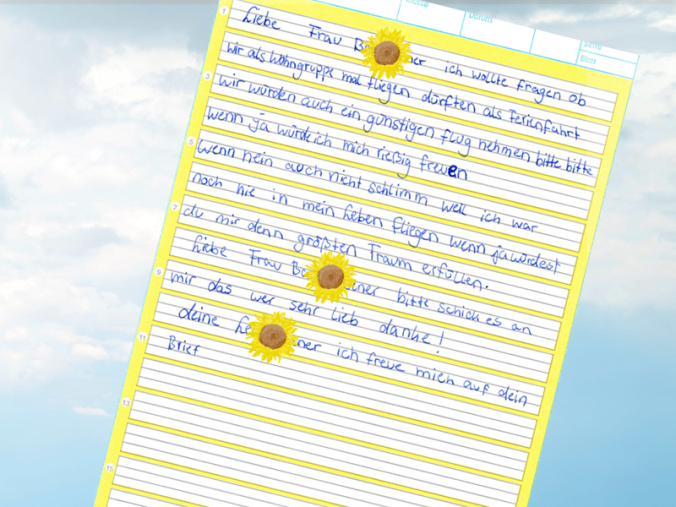 Klasse Datum Seite
Blatt
1 Liebe Frau B ner ich wollte fragen ob
wir als Wohngruppe mal fliegen dürften als Ferienfahrt
3 wir würden auch ein günstigen flug nehmen bitte bitte
wenn ja würde ich mich rießig freuen
5 wenn nein auch nicht schlimm weil ich war
noch nie in mein Leben fliegen wenn ja würdest
7 du mir denn größten Traum erfüllen.
Liebe Frau Be ner bitte schick es an
9 mir das wer sehr lieb danke!
deine Le ner ich freue mich auf dein
11 Brief
13
15